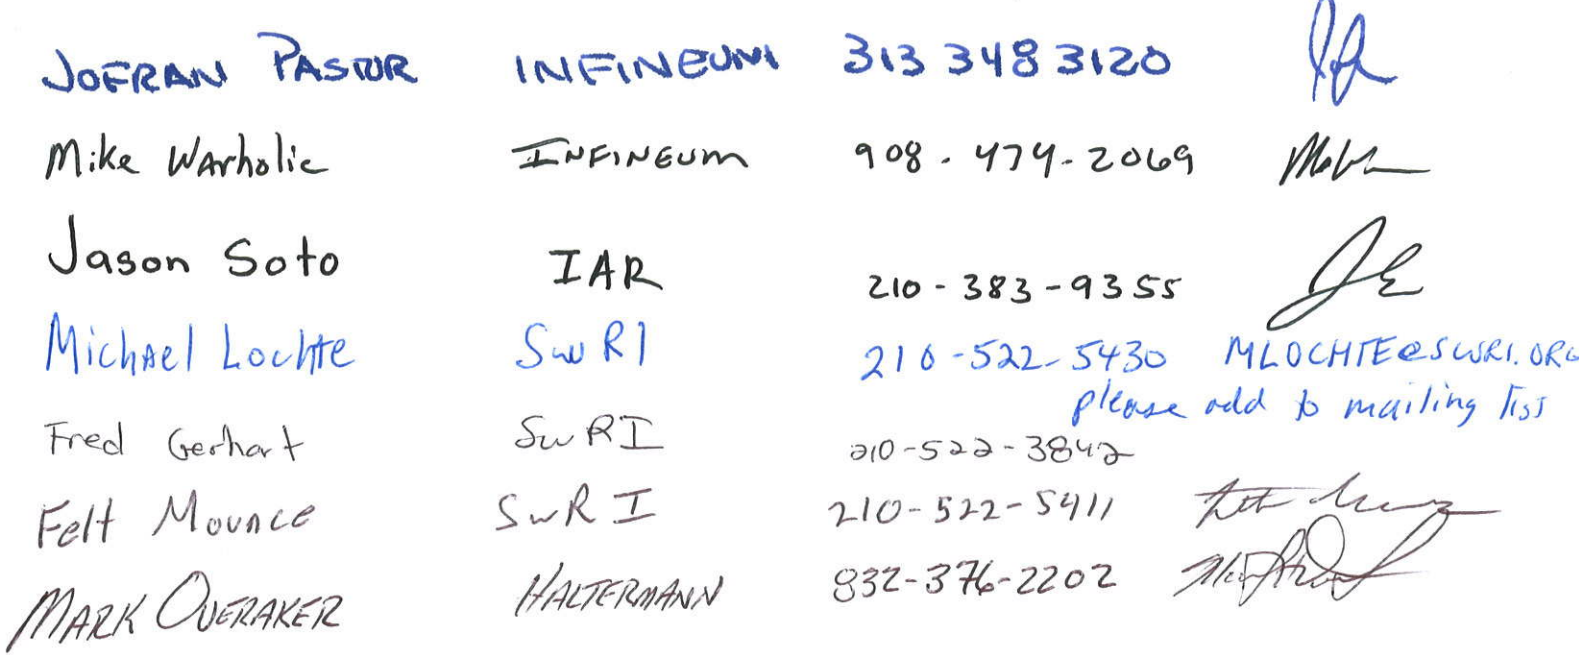 JOFRAN PASTOR INFINEUM 313 348 3120
Mike Warholic INFINEUM 908-474-2069
Jason Soto IAR 210-383-9355
Michael Lochte SwRI 210-522-5430 MLOCHTE@SWRI.ORG
please add to mailing list
Fred Gerhart SwRI 210-522-3842
Felt Mounce SwRI 210-522-5411
MARK OVERAKER HALTERMANN 832-376-2202